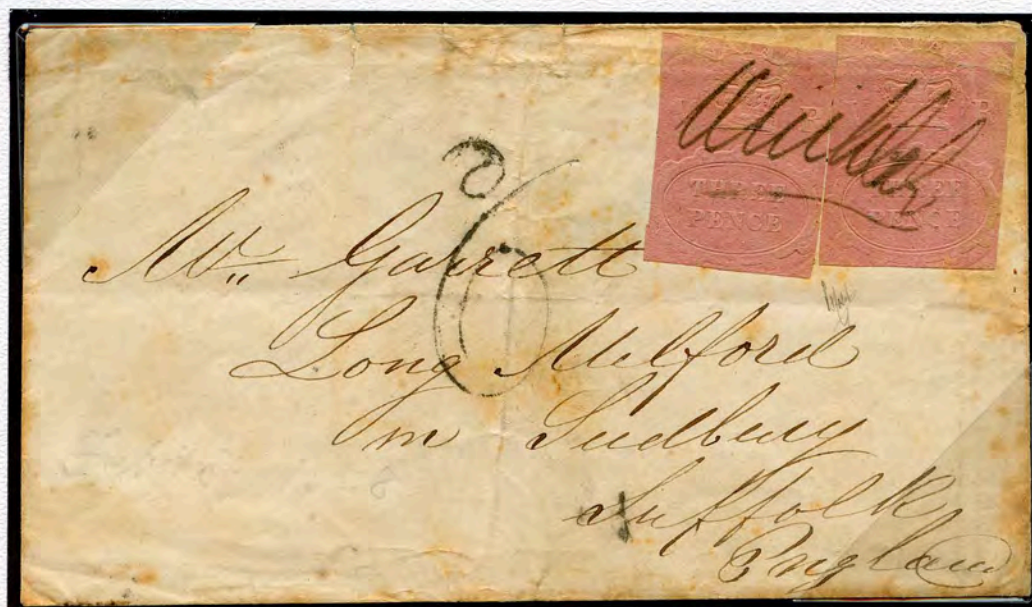 V R
THREE
PENCE
R
THREE
PENCE
6
Mr. Garrett
Long Melford
nr Sudbury
Suffolk
England